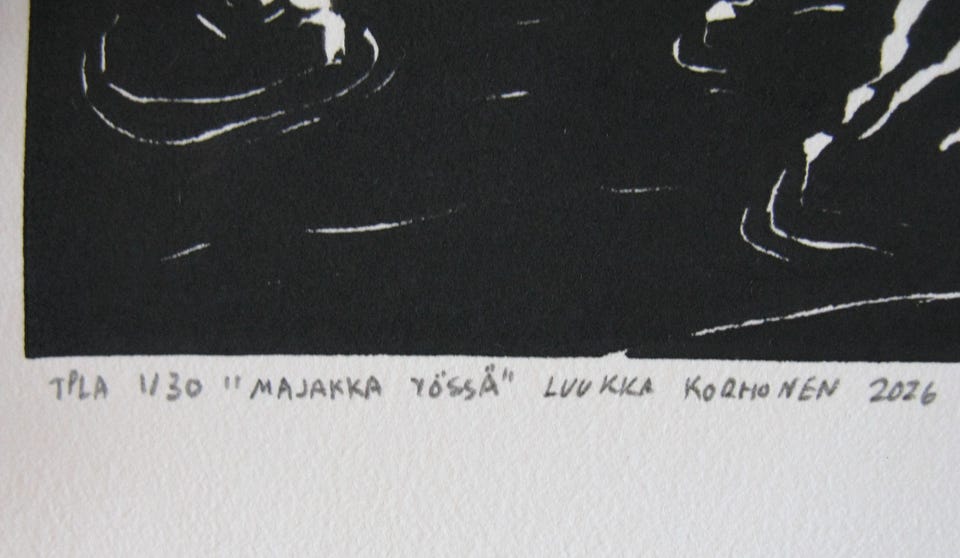 TPLA 1/30 "MAJAKKA YÖSSÄ" LUUKKA KORHONEN 2026